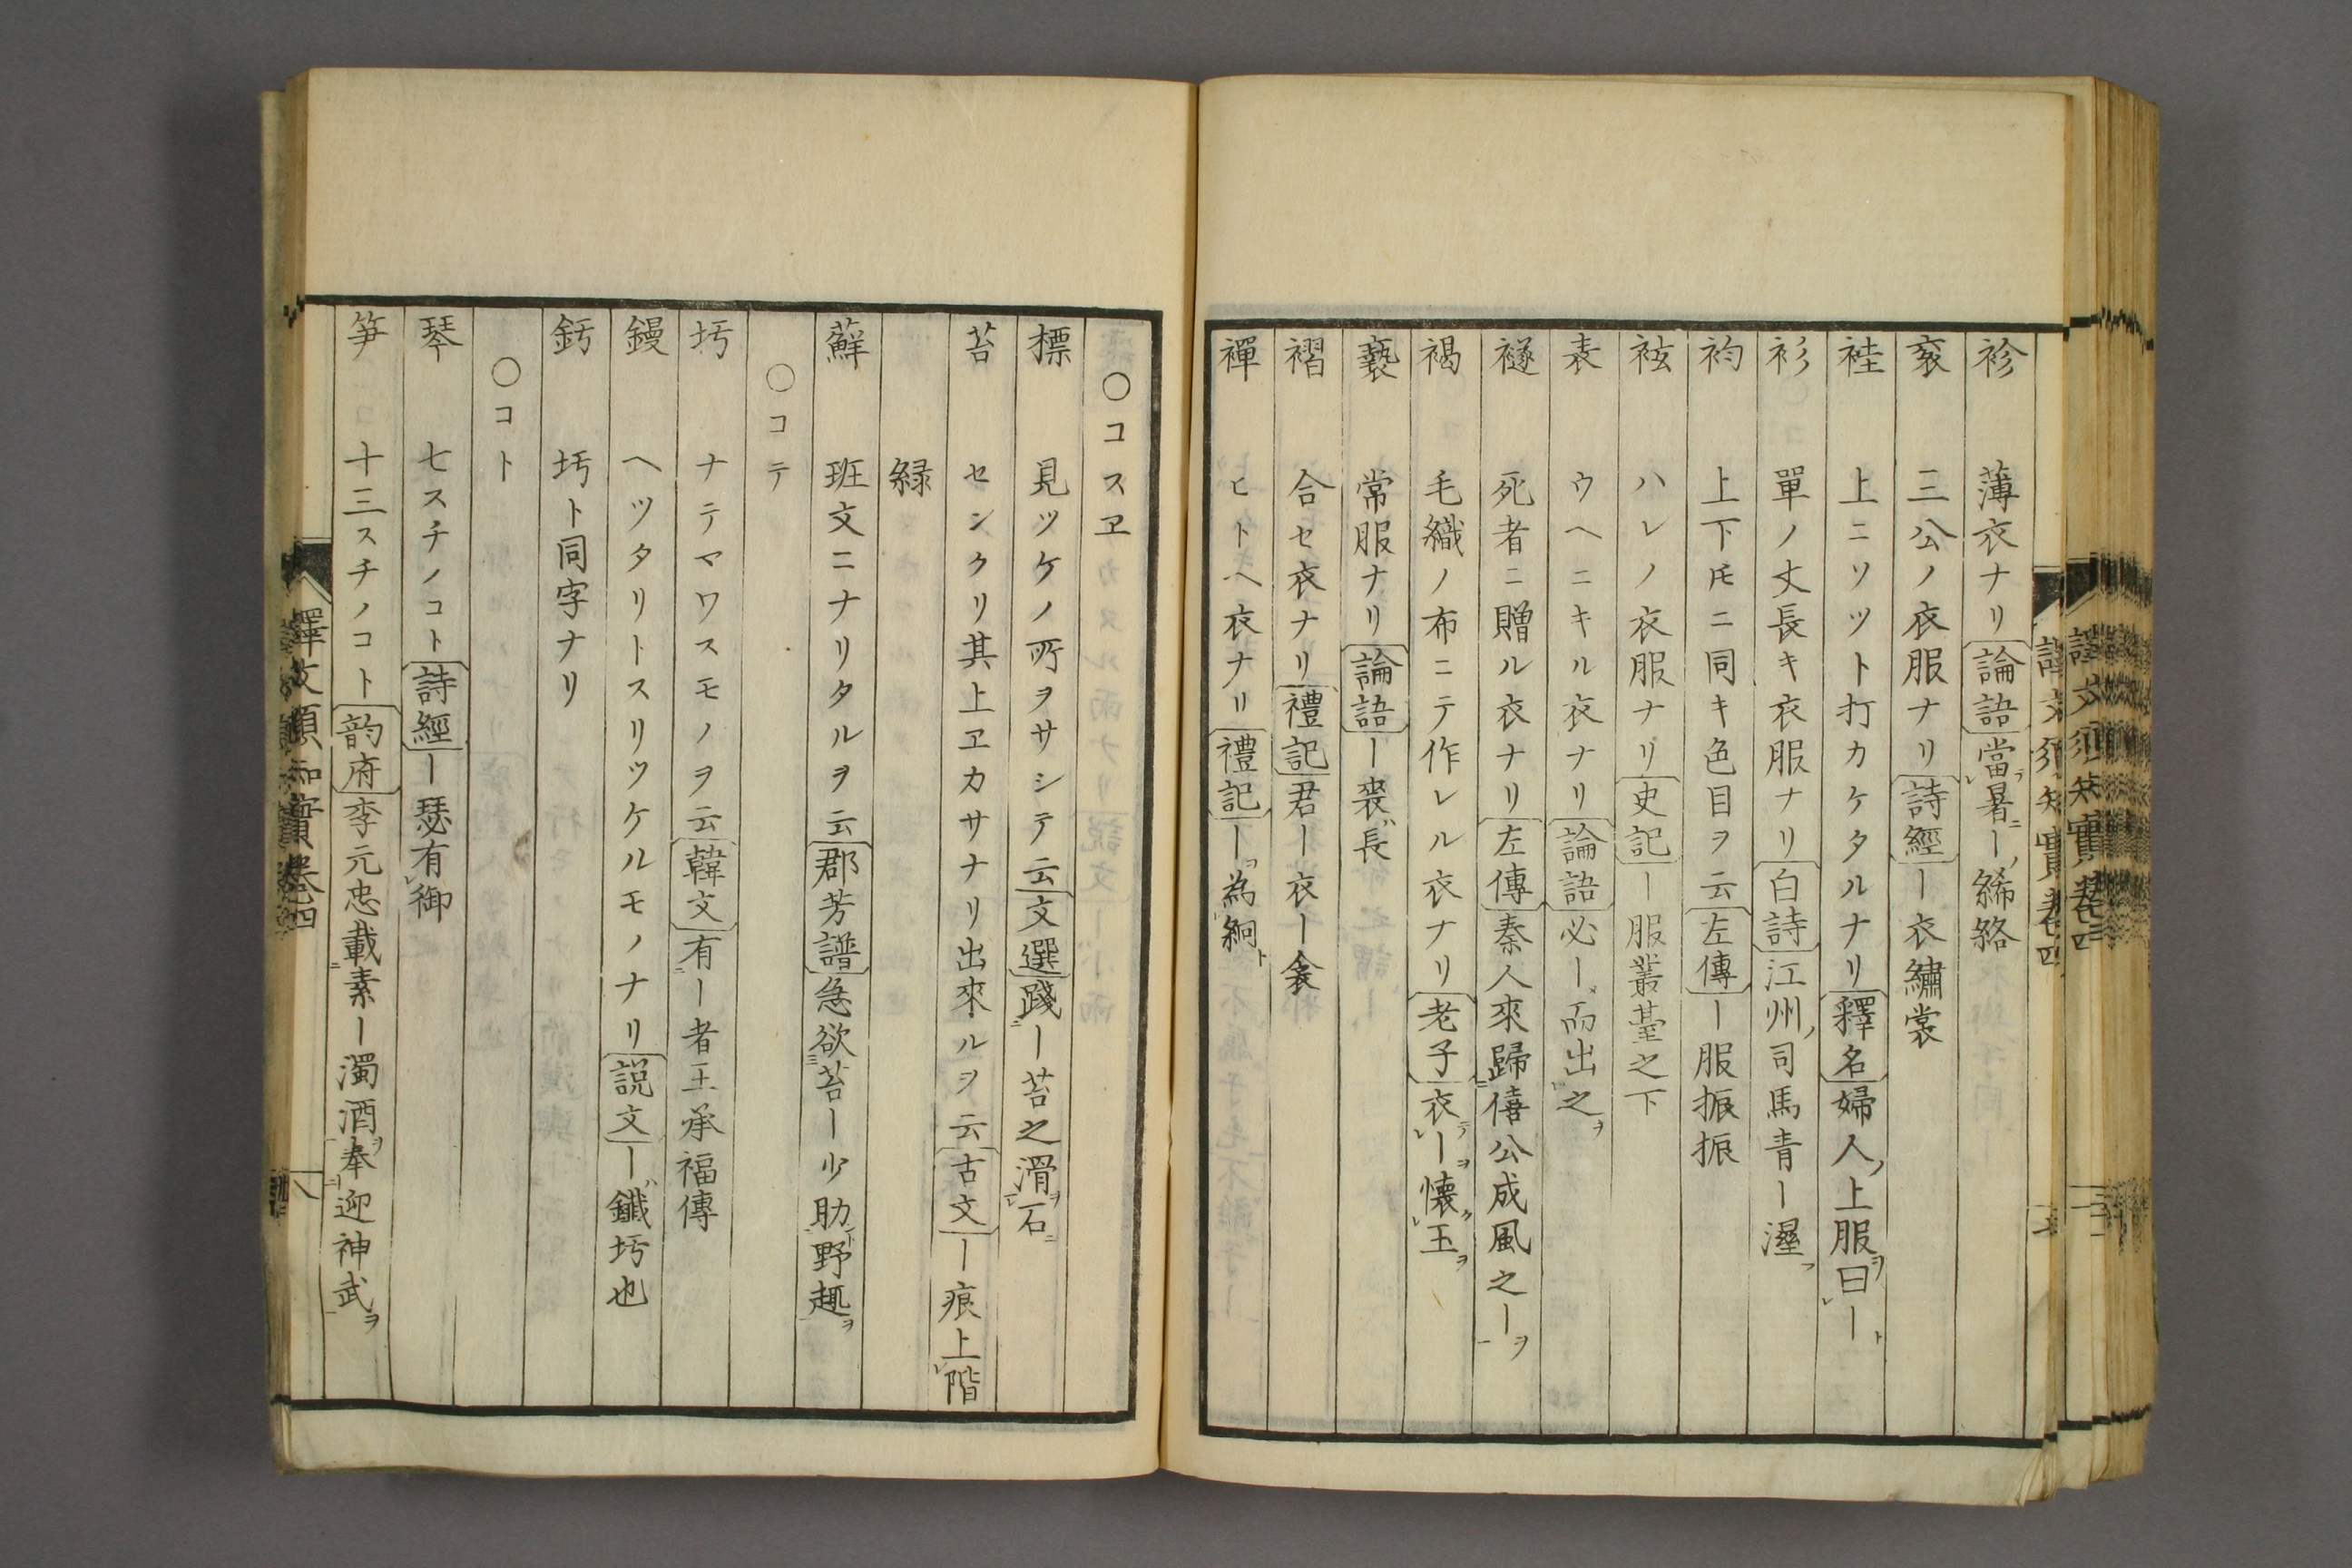 袗 薄衣ナリ論語當暑ー絺綌
衮 三公ノ衣服ナリ詩經ー衣繡裳
袿 上ニソツト打カケタルナリ釋名婦人上服曰ー
衫 單ノ丈長キ衣服ナリ白詩江州司馬青ー濕
袀 上下ﾄﾓニ同キ色目ヲ云左傳ー服振振
袨 ハレノ衣服ナリ史記ー服叢臺之下
表 ウヘニキル衣ナリ論語必ー而出之
襚 死者ニ贈ル衣ナリ左傳秦人來歸僖公成風之ー
褐 毛織ノ布ニテ作レル衣ナリ老子衣ー懐玉
褻 常服ナリ論語ー裘長
褶 合セ衣ナリ禮記君ー衣ー衾
襌 ヒトヘ衣ナリ禮記ー為絅
○コスヱ
標 見ツケノ所ヲサシテ云文選踐ー苔之滑石
苔 センクリ其上ヱカサナリ出來ルヲ云古文ー痕上階
緑
蘚 班文ニナリタルヲ云郡芳譜急欲苔ー少助野趣
○コテ
圬 ナテマワスモノヲ云韓文有ー者王承福傳
鏝 ヘツタリトスリツケルモノナリ説文ー鐵圬也
釫 圬ト同字ナリ
○コト
琴 七スチノコト詩經ー瑟有御
筝 十三スチノコト韵府李元忠載素ー濁酒奉迎神武
譯文須知實巻四
八